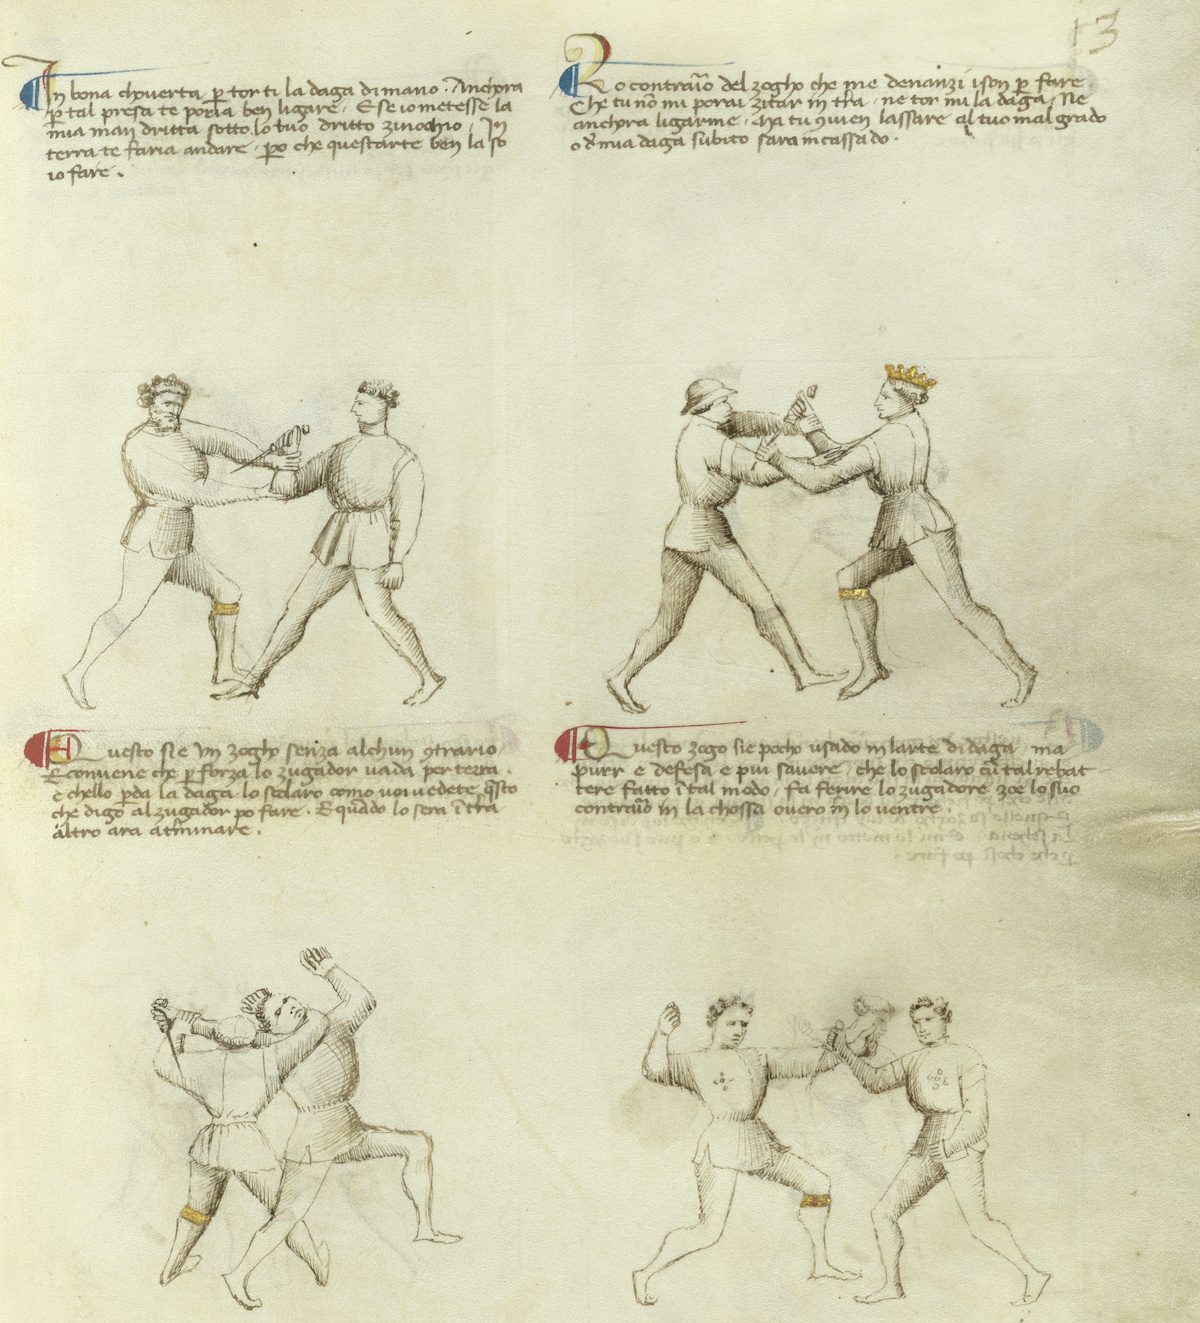 13
In bona choverta p tor ti la daga di mano. Anchora
p tal presa te poria ben ligare. E se io metesse la
mia man dritta sotto lo tuo dritto zinochio, In
terra te faria andare, po che questarte ben la so
io fare.
Lo contraio del zogho che me denanzi ison p fare
Che tu nō mi porai zitar in tra, ne tor mi la daga, Ne
anchora ligarme. Ma tu 9vien lassare al tuo mal grado
o d mia daga subito sara incassado.
Questo si e un zogho senza alchun 9trario
E conviene che p forza lo zugador vada per terra.
e chello pda la daga lo scolaro como voi vedete qsto
che digo al zugador po fare. E quādo lo sera ī tra
altro ara a tminare.
Questo zogo sie pocho usado in larte di daga, ma
purr e defesa e piu savere, che lo scolaro cū tal rebat
tere fatto ī tal modo, fa ferire lo zugadore zoe lo suo
contraiō in la chossa overo in lo ventre.